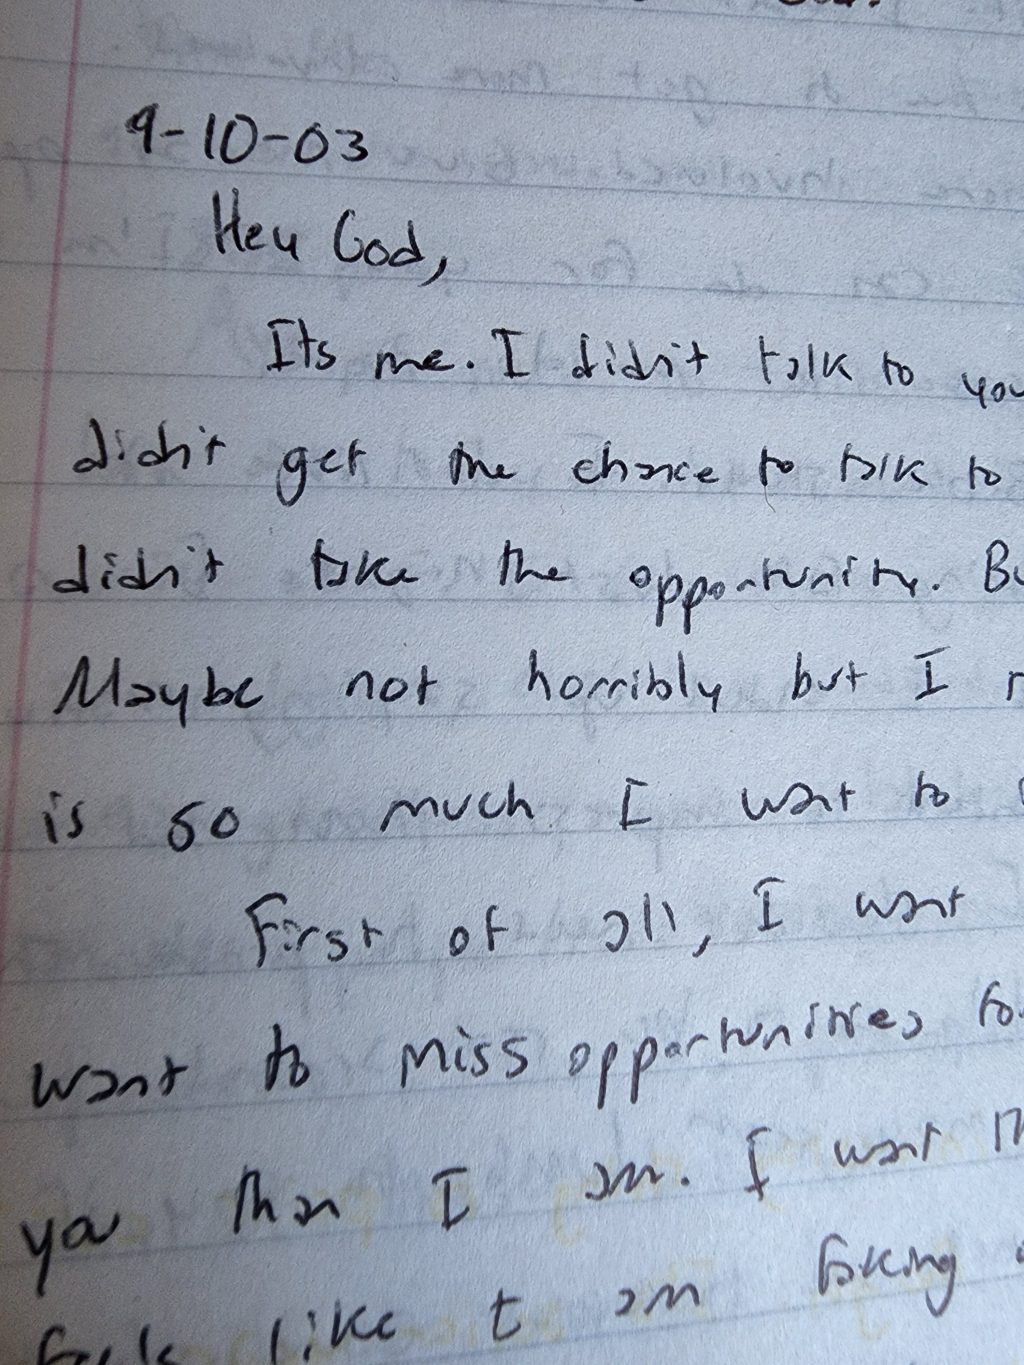 9-10-03
Hey God,
Its me. I didn't talk to you
didn't get the chance to talk to
didn't take the opportunity. Bu
Maybe not horribly but I r
is so much I want to
First of all, I want
want to miss opportunities to
you than I am. I want th
feels like I am taking